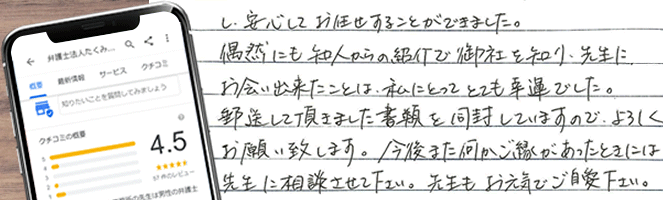 弁護士法人たくみ...
概要 最新情報 サービス クチコミ
知りたいことを質問してみましょう
クチコミの概要
5
4
3
2
1
4.5
57 件のレビュー
の先生は男性の弁護士
し、安心してお任せすることができました。
偶然にも知人からの紹介で御社を知り、先生に
お会い出来たことは、私にとってとても幸運でした。
郵送して頂きました書類を同封していますので、よろしく
お願い致します。今後また何かご縁があったときには
先生に相談させて下さい。先生もお元気でご自愛下さい。